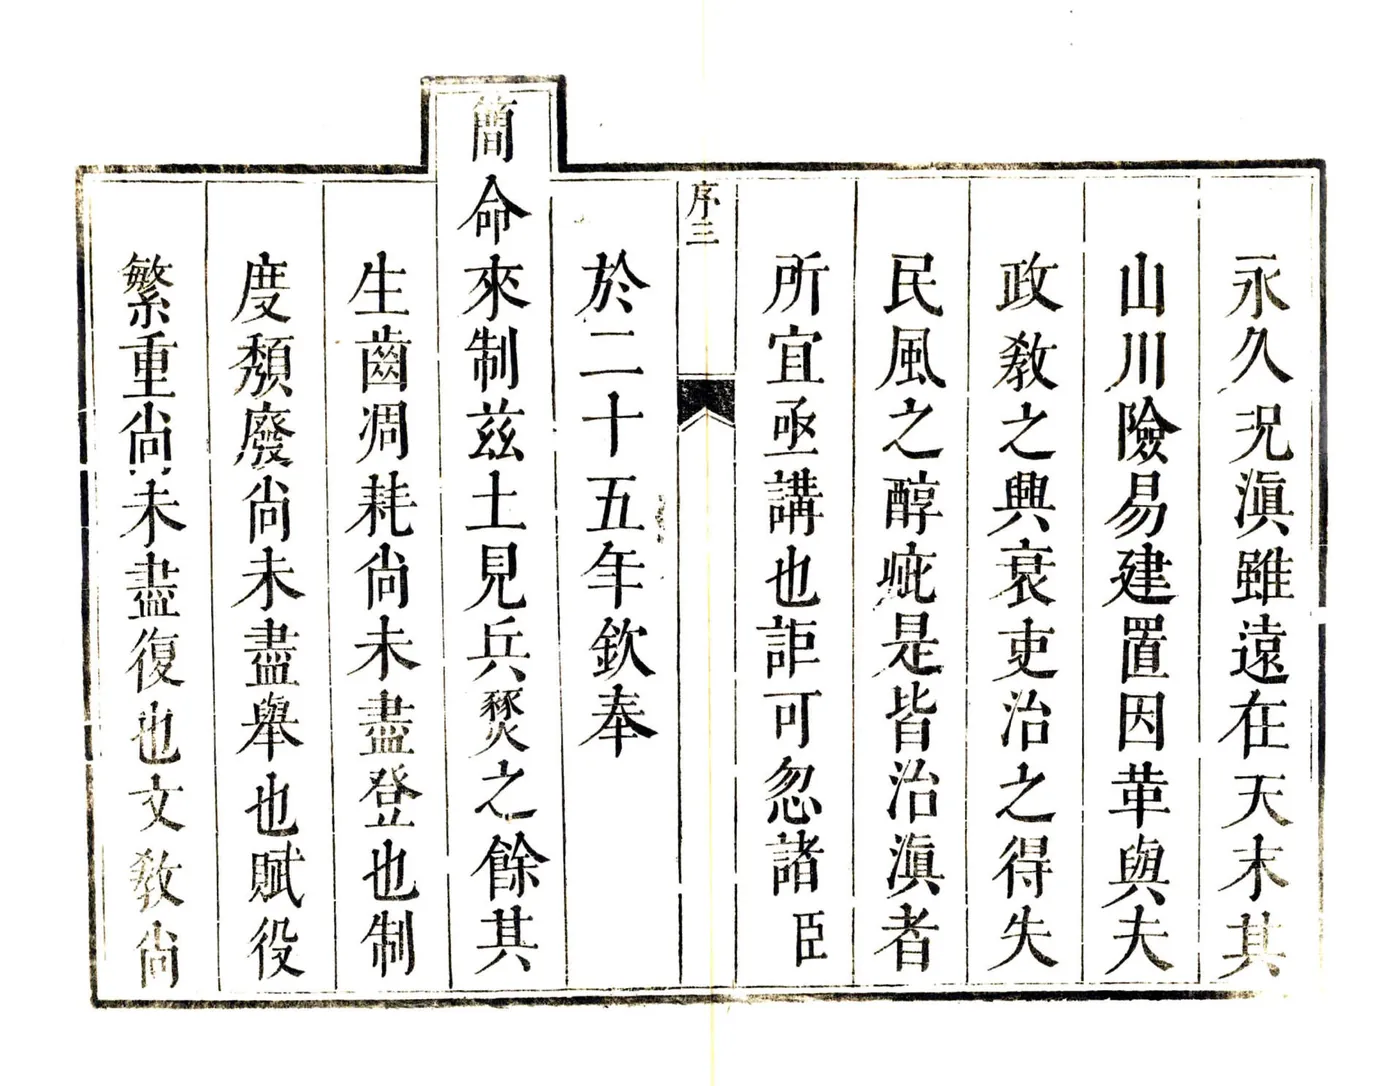 永久況滇雖遠在天末其
山川險易建置因革與夫
政教之興衰吏治之得失
民風之醇疵是皆治滇者
所宜亟講也詎可忽諸臣
序三
於二十五年欽奉
簡命來制兹土見兵燹之餘其
生齒凋耗尚未盡登也制
度頽廢尚未盡舉也賦役
繁重尚未盡復也文教尚